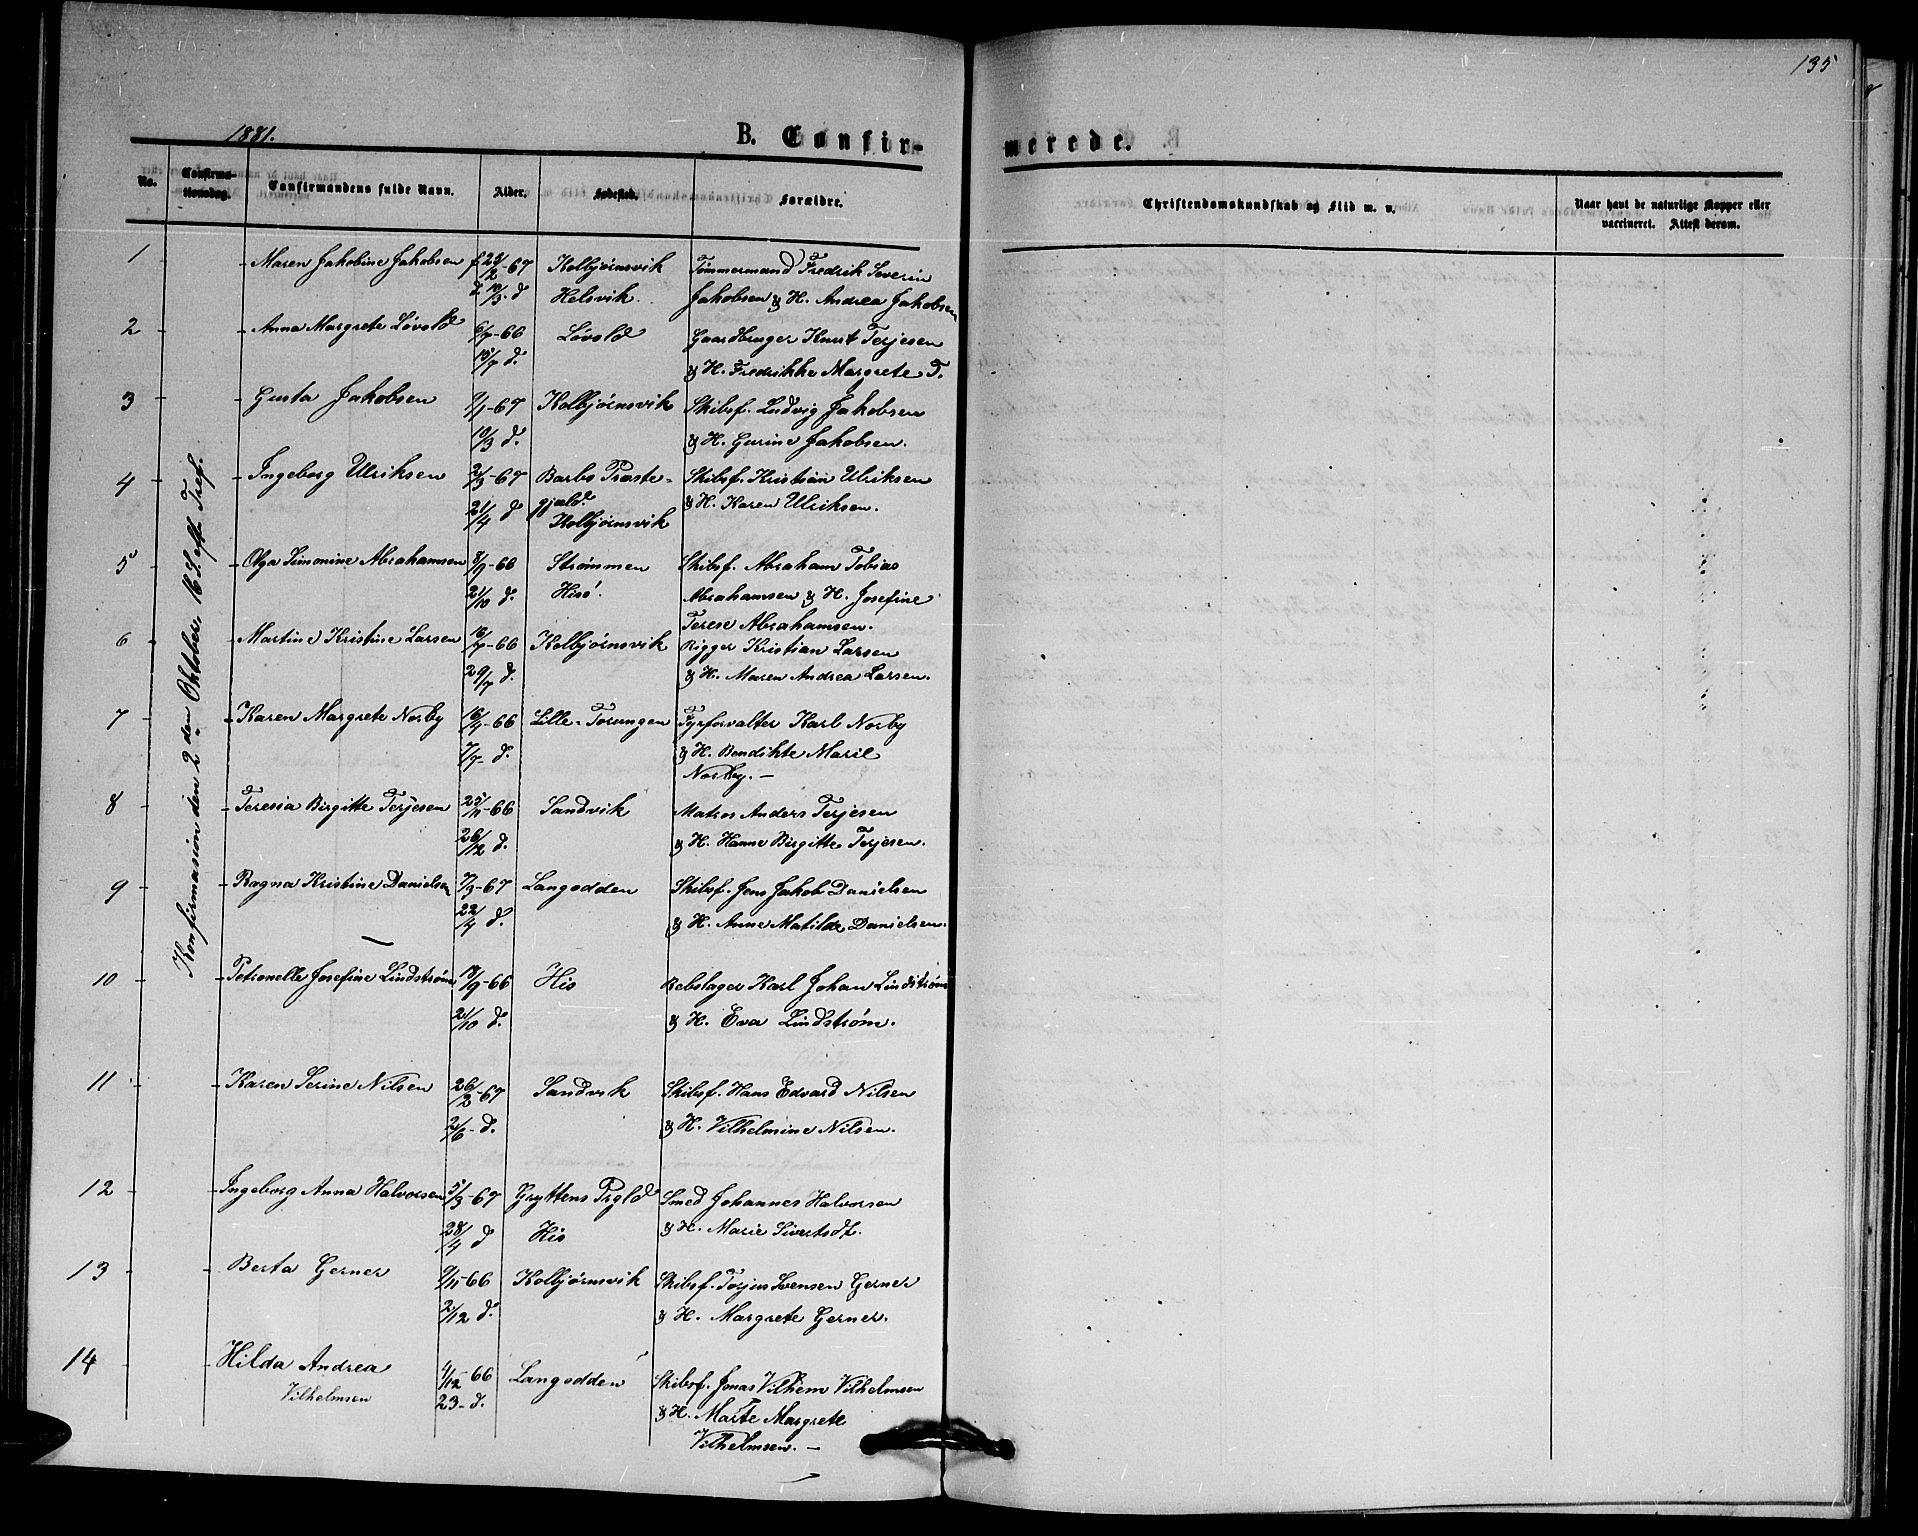 135
1881.
B. Confir-
merede.
No.
Confirma-
tionsdag.
Confirmandens fulde Navn.
Alder.
Fødested.
Forældre.
Christendomskundskab og Flid m. v.
Naar havt de naturlige Kopper eller
vaccineret. Attest derom.
Konfirmasion den 2den Oktober, 16 S. eft. Tref.
1 Maren Jakobine Jakobsen f 25/2-67 Kolbjørnsvik Tømmermand Fredrik Severin
d. 10/3. d Helsvik. Jakobsen & H. Andrea Jakobsen
2 Anna Margrete Løvold 6/7-66 Løvold Gaardbruger Knut Terjesen
15/7 d. & H. Fredrikke Margrete T.
3 Gusta Jakobsen 9/1-67 Kolbjørnsvik Skibsf. Ludvig Jakobsen
10/3 d. & H. Gurine Jakobsen.
4 Ingeborg Ulriksen 2/3-67 Barbo Præste- Skibsf. Kristian Ulriksen
21/4 d gjæld & H. Karen Ulriksen.
Kolbjørnsvik
5 Olga Simonine Abrahamsen 8/9-66 Strømmen Skibsf. Abraham Tobias
21/10 d. Hisö. Abrahamsen & H. Josefine
Terese Abrahamsen.
6 Martine Kristine Larsen 16/7-66 Kolbjørnsvik Rigger Kristian Larsen
29/7 d. & H. Maren Andrea Larsen.
7 Karen Margrete Norby 16/4-66 Lille-Torungen Fyrforvalter Karl Norby
7/7- d. & H. Bendikte Marie
Norby. —
8 Teresia Birgitte Terjesen 25/11-66 Sandvik Matros Anders Terjesen
26/12 d. & H. Hanne Birgitte Terjesen.
9 Ragna Kristine Danielsen 7/3-67 Langodden Skibsf. Jens Jakob Danielsen
22/4 d. & H. Anne Matilde Danielsen.
10 Petronelle Josefine Lindstrøm 18/9-66 His Rebslager Karl Johan Lindstrøm
21/10 d. & H. Eva Lindstrøm.
11 Karen Serine Nilsen 26/2-67 Sandvik Skibsf. Hans Edvard Nilsen
2/6- d. & H. Vilhelmine Nilsen.
12 Ingeborg Anna Halvorsen 5/3-67 Gryttens Prgld Smed Johannes Halvorsen
28/4 d His & H. Marie Sivertsdt.
13 Berta Gerner 9/11-66 Kolbjørnsvik Skibsf. Torjus Svensen Gerner
2/12 d. & H. Margrete Gerner.
14 Hilda Andrea 4/12-66 Langodden Skibsf. Jonas Vilhem Vilhelmsen
Vilhelmsen 23- d. & H. Marte Margrete
Vilhelmsen. —